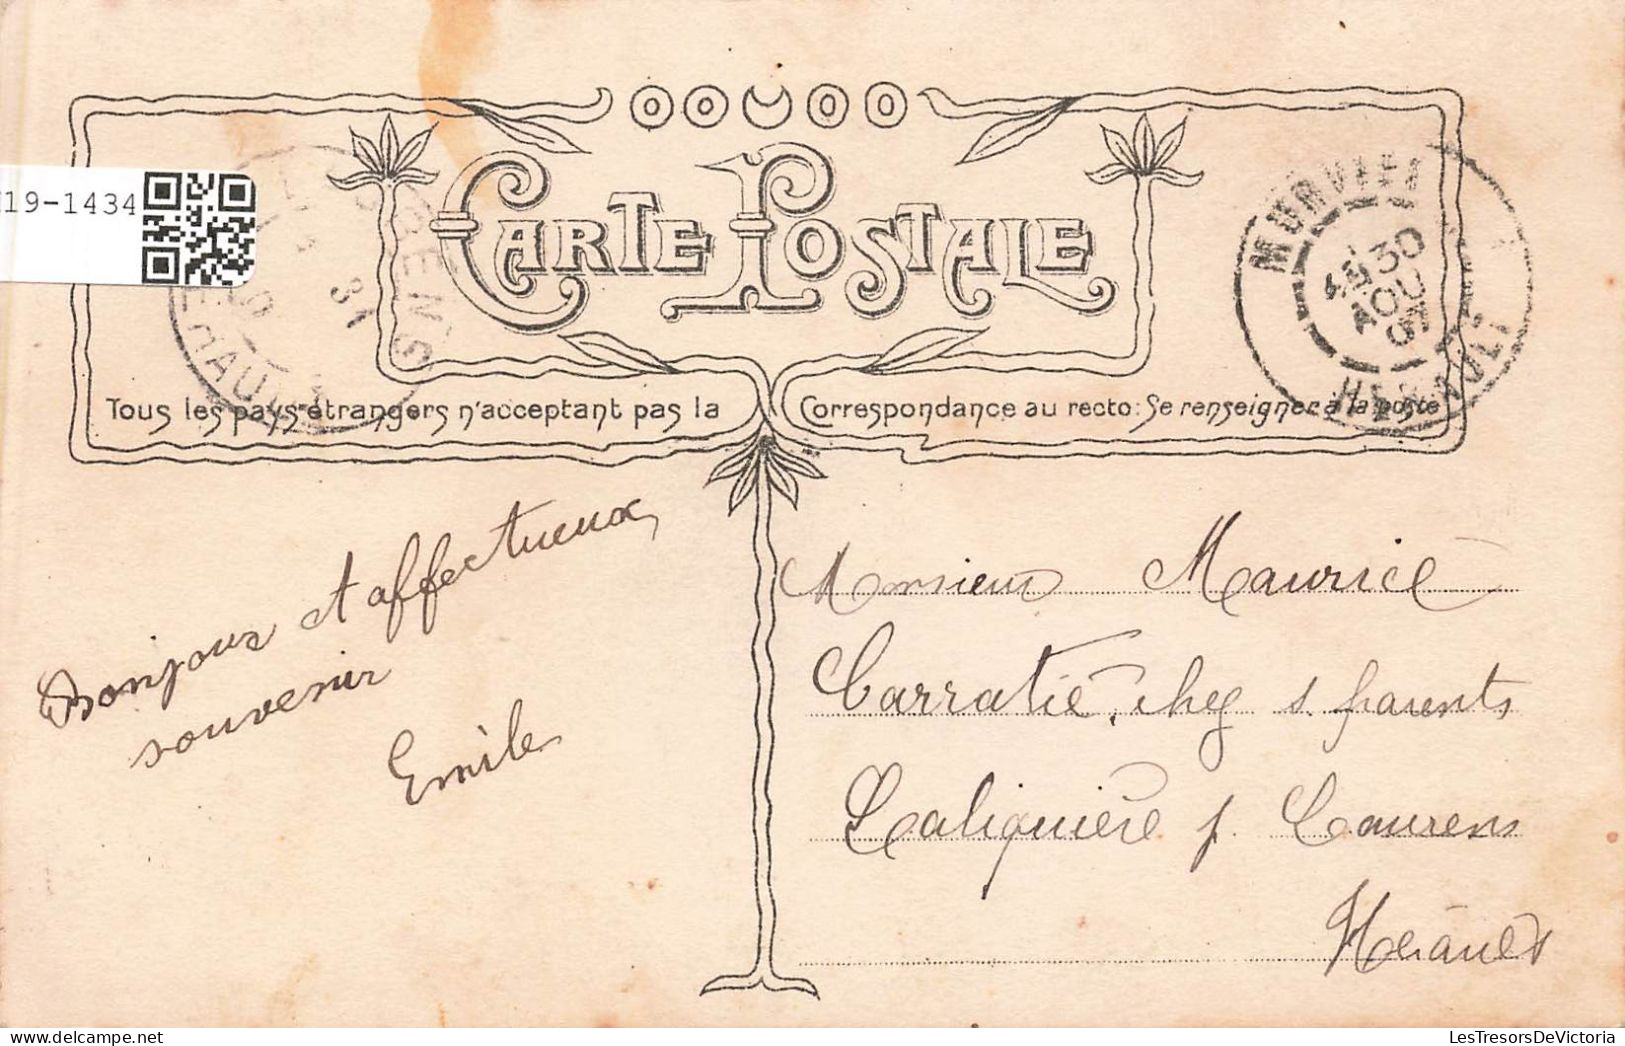 19-1434
CARTE POSTALE
Tous les pays étrangers n'acceptant pas la Correspondance au recto: Se renseigner à la poste
MURVIEL
30
AOU
HERAULT
31
HERAULT
Bonjour et affectueux
souvenir
Emile
Monsieur Maurice
Carratié, chez s. parents
Laliquière p. Laurens
Hérault
LesTresorsDeVictoria